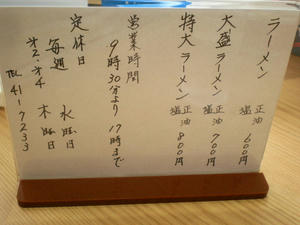 ラーメン 正油 塩 600円
大盛ラーメン 正油 塩 700円
特大ラーメン 正油 塩 800円
営業時間
9時30分より 17時まで
定休日
毎週 水曜日
才2.才4 木曜日
TEL 41-7233